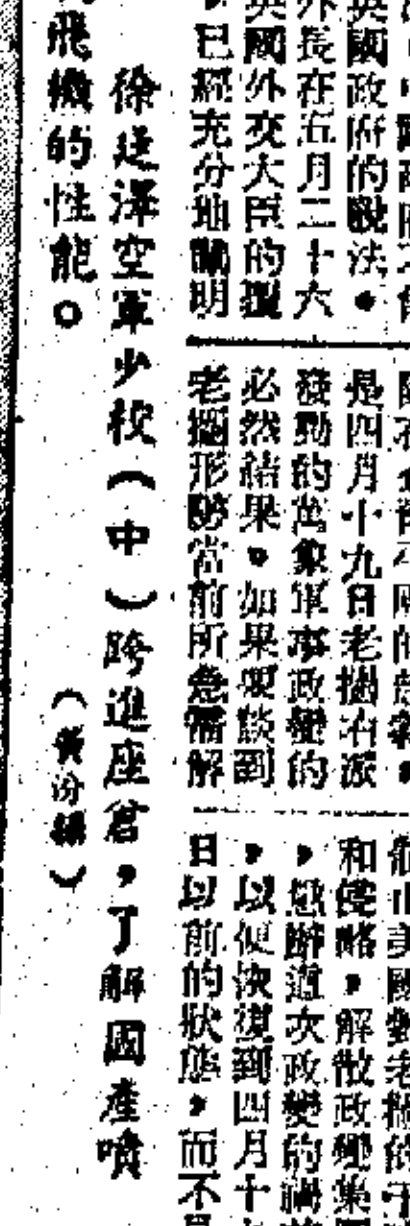 英國政府的說法。
外長在五月二十六
英國外交大臣的
，已經充分地闡明
是四月十九日老撾右派
發動的萬象軍事政變的
必然結果。如果要談到
老撾形勢當前所急需解
和侵略，解散政變集
，懲辦這次政變的禍
，以便恢復到四月十
日以前的狀態，而不
徐廷澤空軍少校（中）跨進座艙，了解國產噴
飛機的性能。
（黃汾攝）